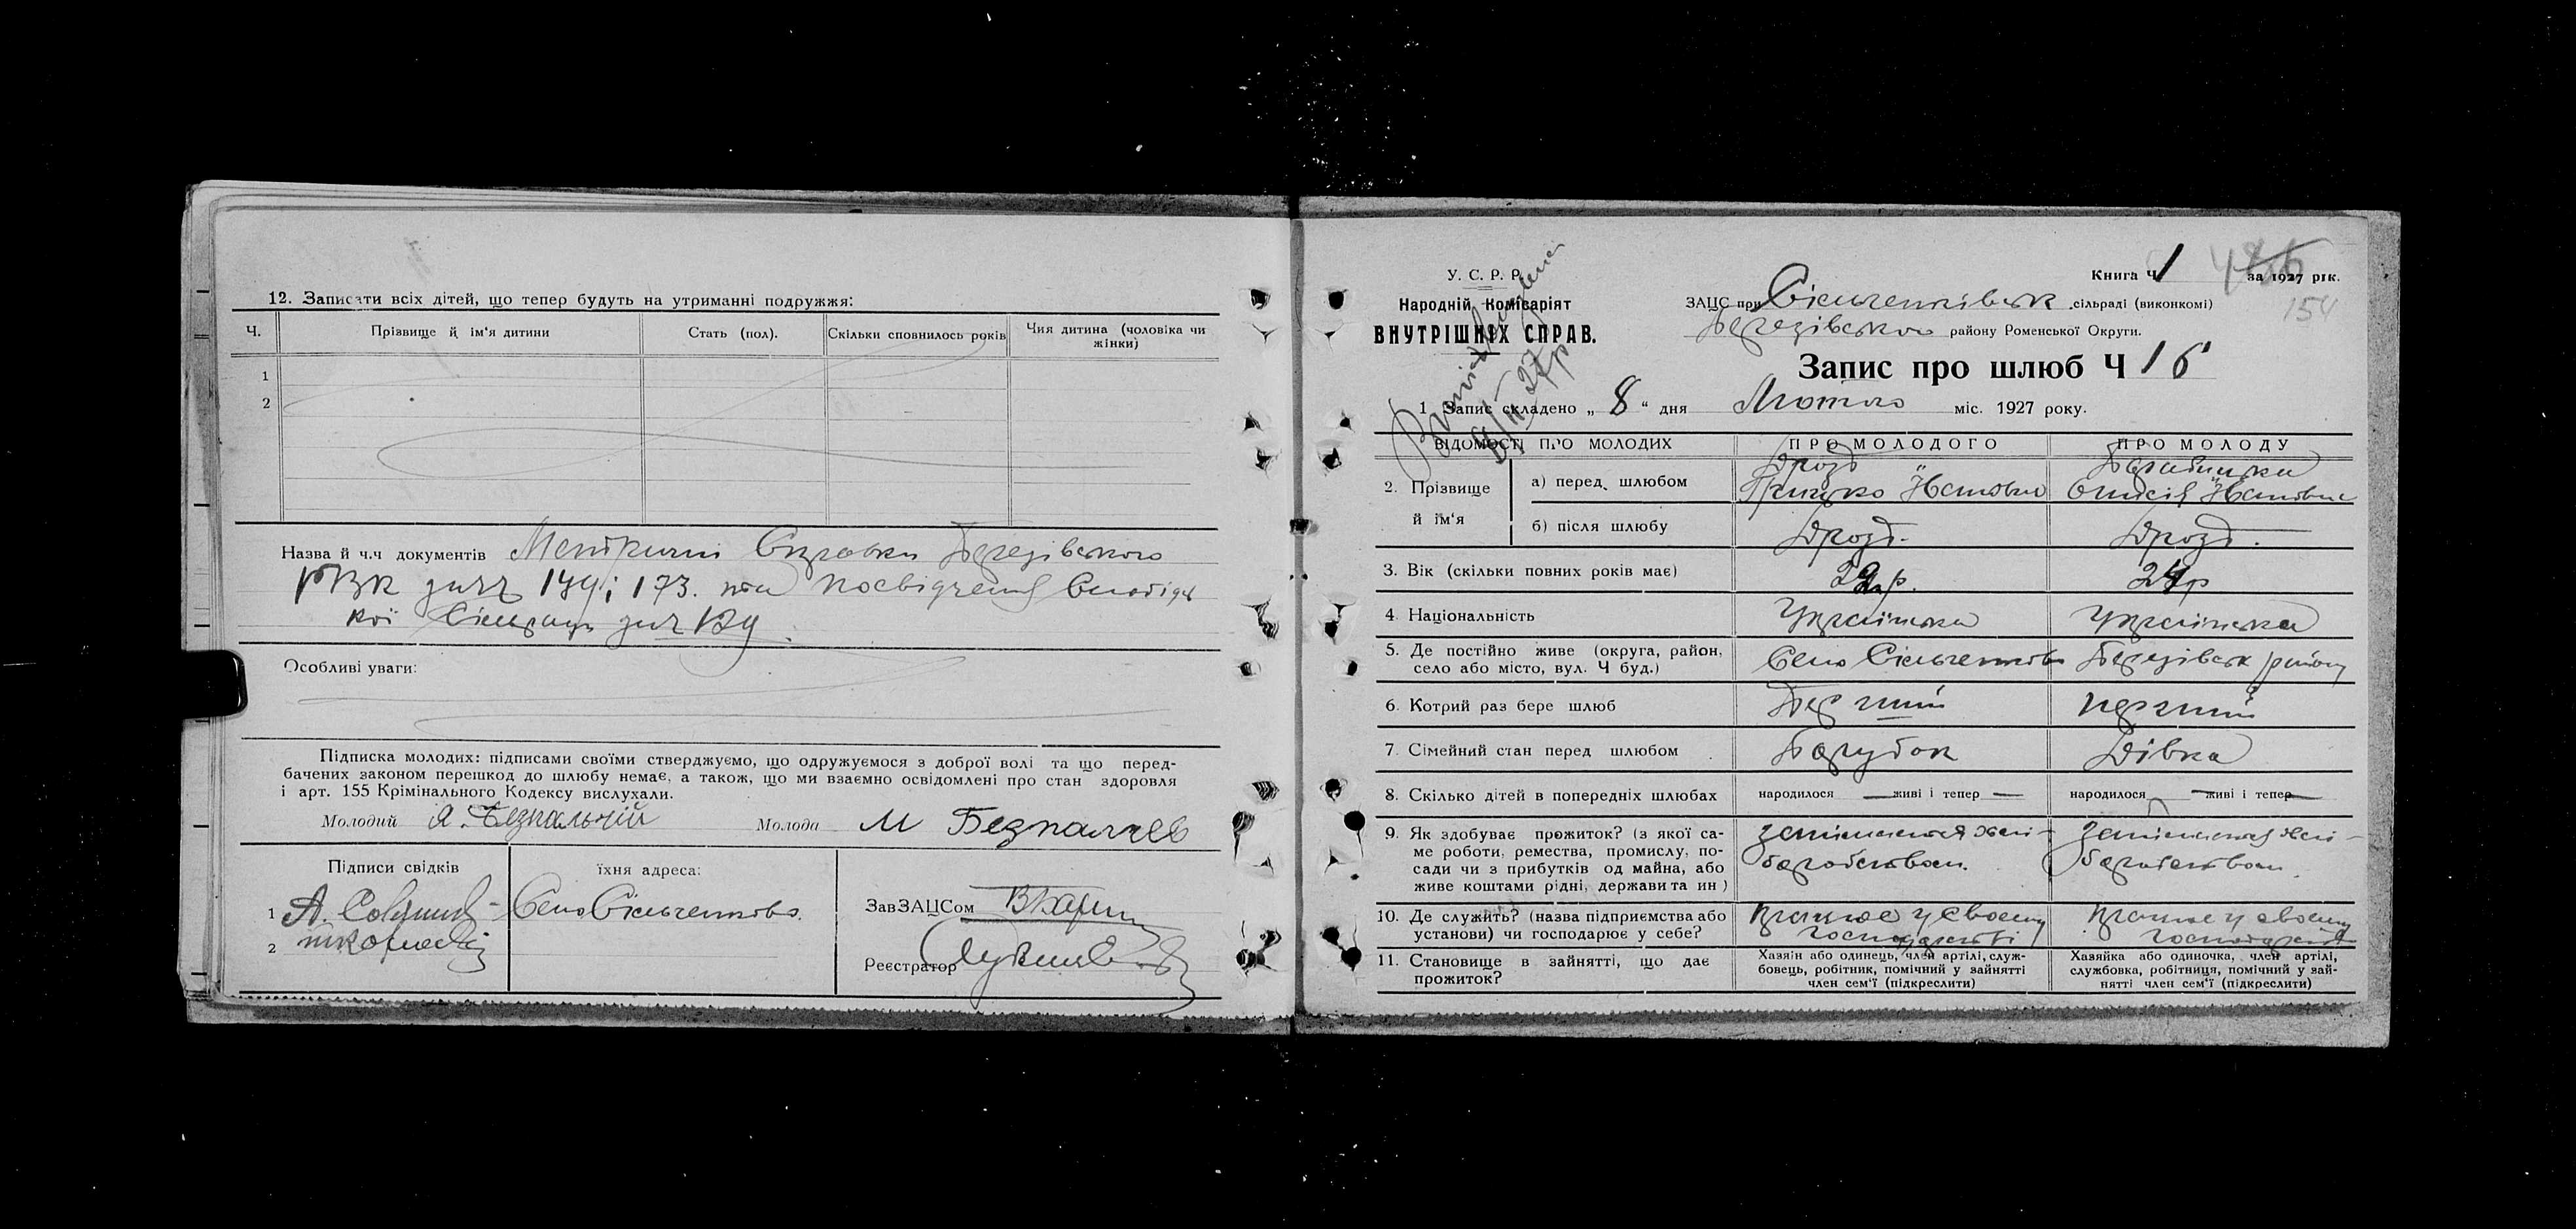 12. Записати всіх дітей, що тепер будуть на утриманні подружжя:
Ч. Прізвище й ім'я дитини Стать (пол). Скільки сповнилось років Чия дитина (чоловіка чи жінки)
1
2
Назва й ч.ч документів Метричні Справки Березівського
РВК за чч 179 і 173. та посвідчення
кої Сільради за ч
Особливі уваги:
Підписка молодих: підписами своїми стверджуємо, що одружуємося з доброї волі та що перед-
бачених законом перешкод до шлюбу немає, а також, що ми взаємно освідомлені про стан здоровля
і арт. 155 Крімінального Кодексу вислухали.
Молодий Я. Безпальчій Молода М Безпалчев
Підписи свідків їхня адреса:
1 А. Село Сільченково. ЗавЗАЦСом
2
Реєстратор
У. С. Р. Р.
Народній Комісаріят
ВНУТРІШНІХ СПРАВ.
Книга Ч 1 за 1927 рік.
154
ЗАЦС при Сільченківськ сільраді (виконкомі)
Березівського району Роменської Округи.
Запис про шлюб Ч 16
1 Запис складено „ 8 " дня Лютого міс. 1927 року.
ВІДОМОСТІ ПРО МОЛОДИХ ПРО МОЛОДОГО ПРО МОЛОДУ
2. Прізвище й ім'я а) перед шлюбом Дрозд
Грицько
б) після шлюбу Дрозд. Дрозд.
3. Вік (скільки повних років має) 24р
4. Національність Українська Українська
5. Де постійно живе (округа, район, село або місто, вул. Ч буд.) Село Сільченково Березівськ району
6. Котрий раз бере шлюб Перший перший
7. Сімейний стан перед шлюбом Парубок Дівка
8. Скілько дітей в попередніх шлюбах народилося — живі і тепер — народилося — живі і тепер —
9. Як здобуває прожиток? (з якої са-
ме роботи, ремества, промислу, по-
сади чи з прибутків од майна, або
живе коштами рідні, держави та ин)
займається хлі-
боробством.
займається хлі-
боробством.
10. Де служить? (назва підприємства або
установи) чи господарює у себе?
працює у своєму
господарстві
працює у своєму
господарстві
11. Становище в зайнятті, що дає
прожиток?
Хазяін або одинець, член артілі, служ-
бовець, робітник, помічний у зайнятті
член сем'ї (підкреслити)
Хазяйка або одиночка, член артілі,
службовка, робітниця, помічний у зай-
нятті член сем'ї (підкреслити)